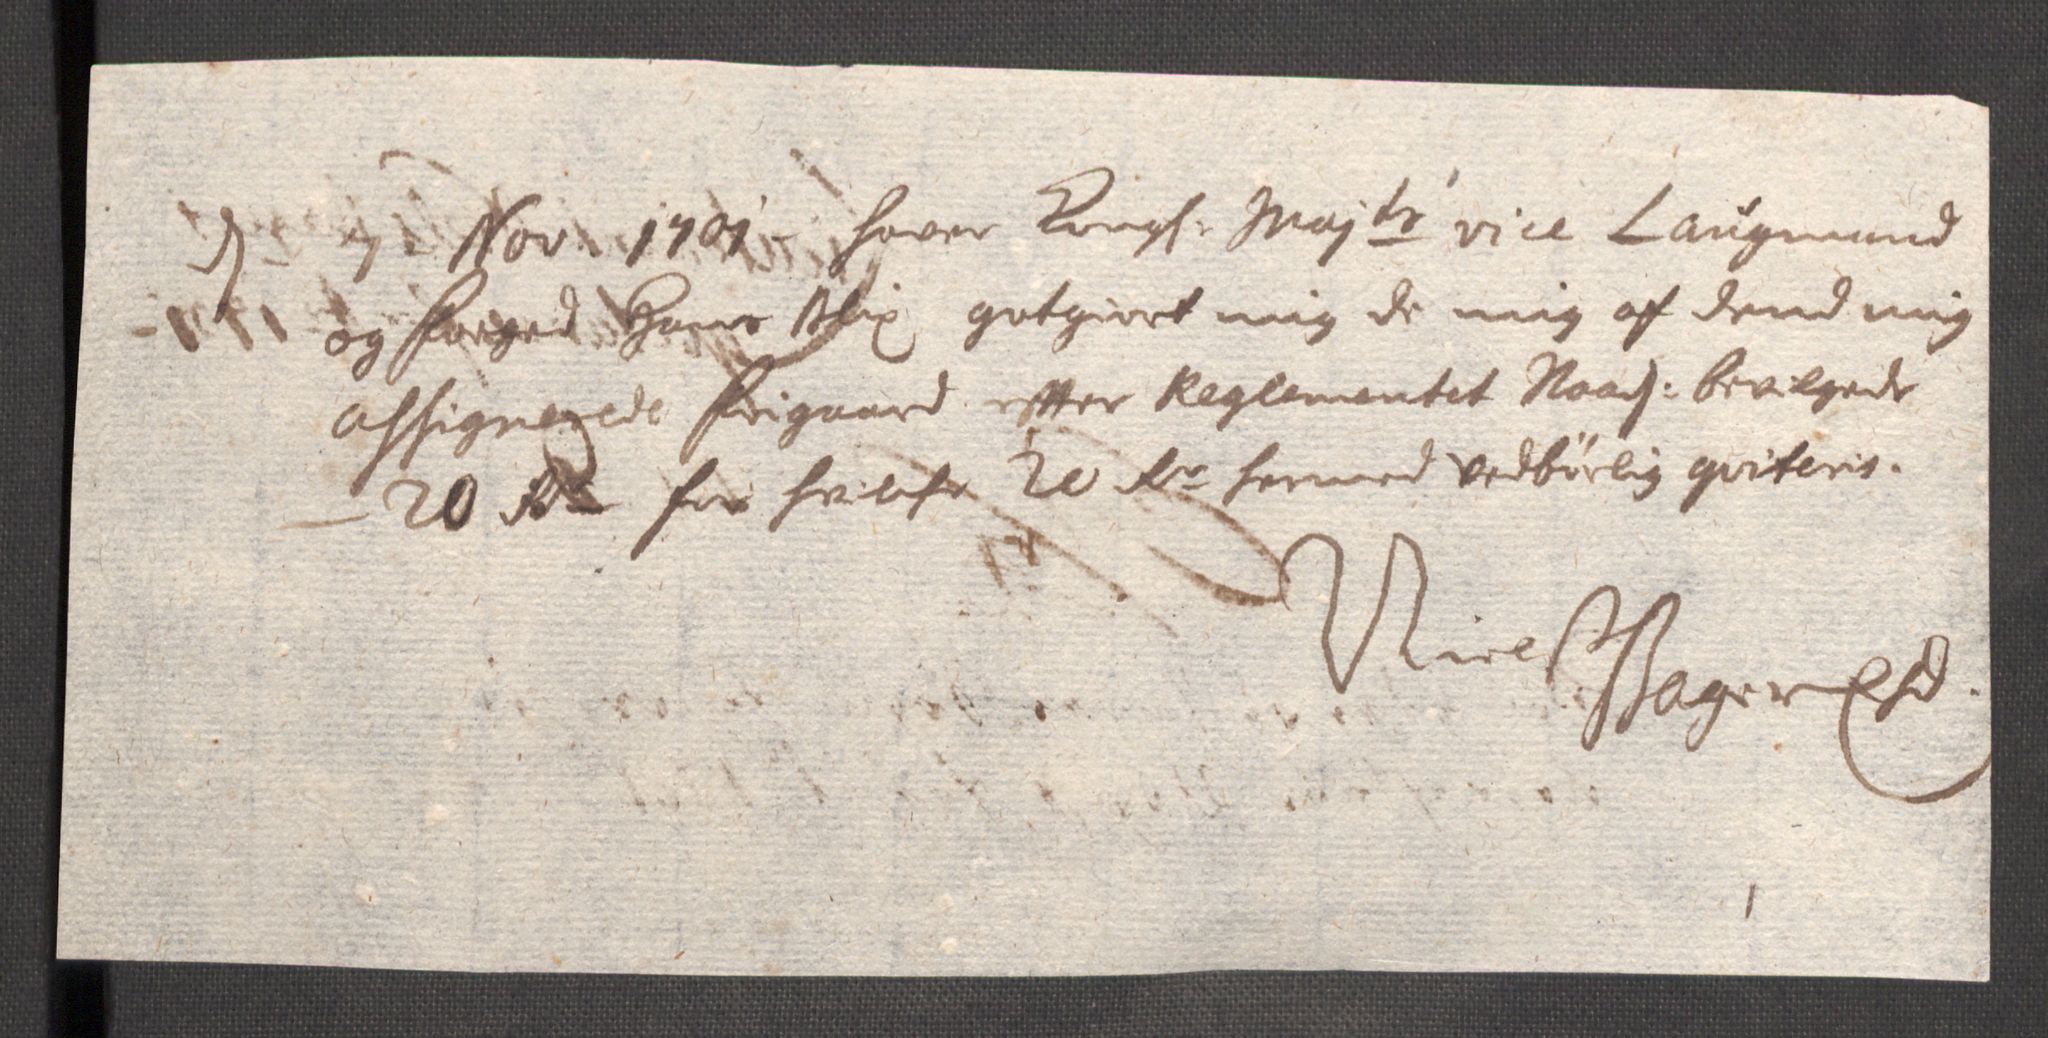 D. 7 Nov. 1701 hafver Kongl. Maj.ts vice Laugmand
og foeged Hans Blix gotgiort mig de mig af dend mig
assignerede frigaard efter Reglementet Naad: bevilgede
20 Rdr for hvilche 20 Rdr hermed vedbörlig qviteris.
Niels Bager